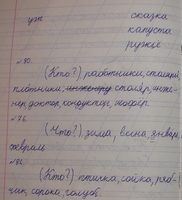 урж сказка
капуста
ружьё
№90.
(Кто?) работники, столяры,
плотники, столяр, инже-
нер, доктор, кондуктор, шофёр.
№76.
(Что?), зима, вина, январь,
февраль
№84.
(Кто?) птичка, сойка, ряб-
чик, сорока, голубь.